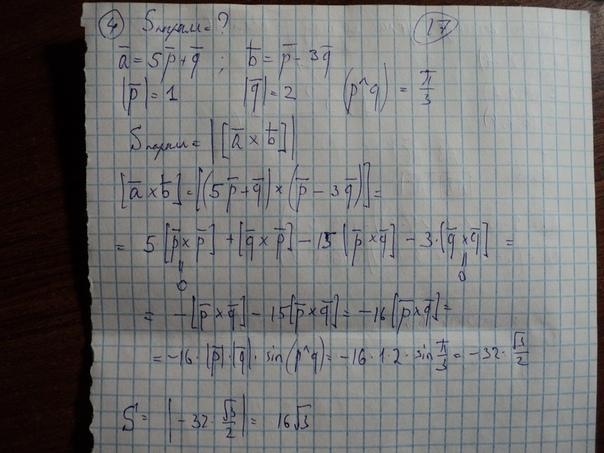 ④ Sпарал.=? 17
a̅=5p̅+q̅ ; b̅=p̅-3q̅
|p̅|=1 |q̅|=2 (p^q) = π/3
Sпарал=|[a̅×b̅]|
[a̅×b̅]=[(5p̅+q̅)×(p̅-3q̅)]=
= 5[p̅×p̅]+[q̅×p̅]-15[p̅×q̅]-3·[q̅×q̅] =
0 0
= -[p̅×q̅]-15[p̅×q̅]=-16[p̅×q̅]=
=-16·|p̅|·|q̅|·sin(p^q)=-16·1·2·sin π/3=-32·√3/2
S=|-32·√3/2|= 16√3